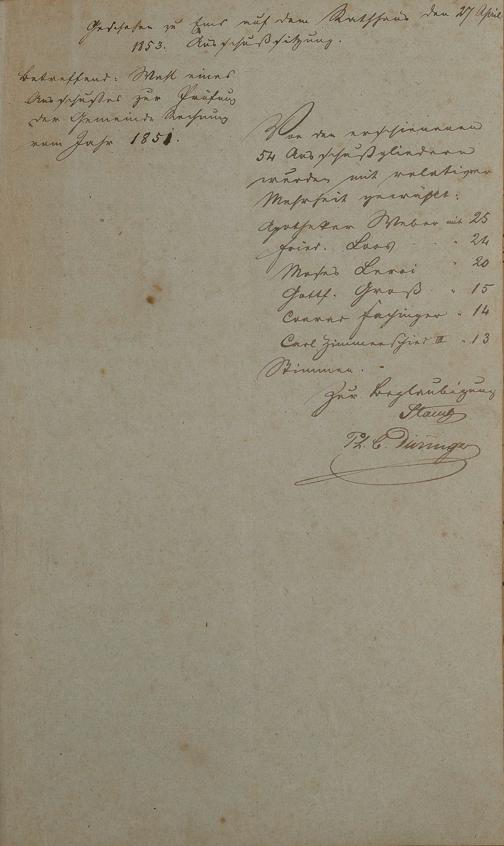 Geschehen zu Ems auf dem Rathhaus den 27 April
1853. Ausschußsitzung.
Betreffend: Wahl eines
Ausschußes zur Prüfung
der Gemeinde Rechnung
vom Jahr 1851.
Von den erschienenen
54 Ausschußgliedern
wurden mit relativer
Mehrheit gewählt:
Apotheker Weber mit 25
Fried. Loos " 24
Moses Leroi " 20
Gottf. Groß " 15
Conrad Fachinger " 14
Carl Zimmerschied III " 13
Stimmen.
Zur Beglaubigung
Ph. C. Düringer